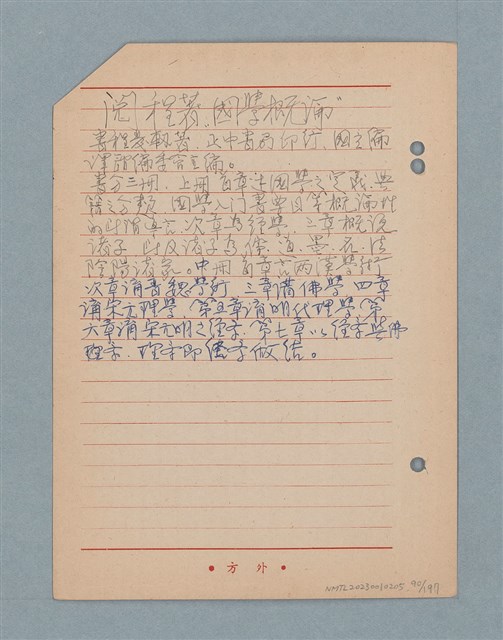 閱程著"國學概論"
書程發軔著.正中書局印行.國立編
譯館編 主編。
書分三冊.上冊首章述國學之定義.典
籍之分類.國學入门書要目等概論性
的 .次章為經學.三章概說
諸子. 及諸子為儒.道.墨.名.法
陰陽諸家。中冊首章言兩漢學術
次章論魏晉學術.三章論佛學.四章
論宋元理學.第五章論明代理學.第
六章論宋元明之經學.第七章以經學與佛
理學.理學即經學做結。
• 方 外 •
NMTL20230010205 90/197